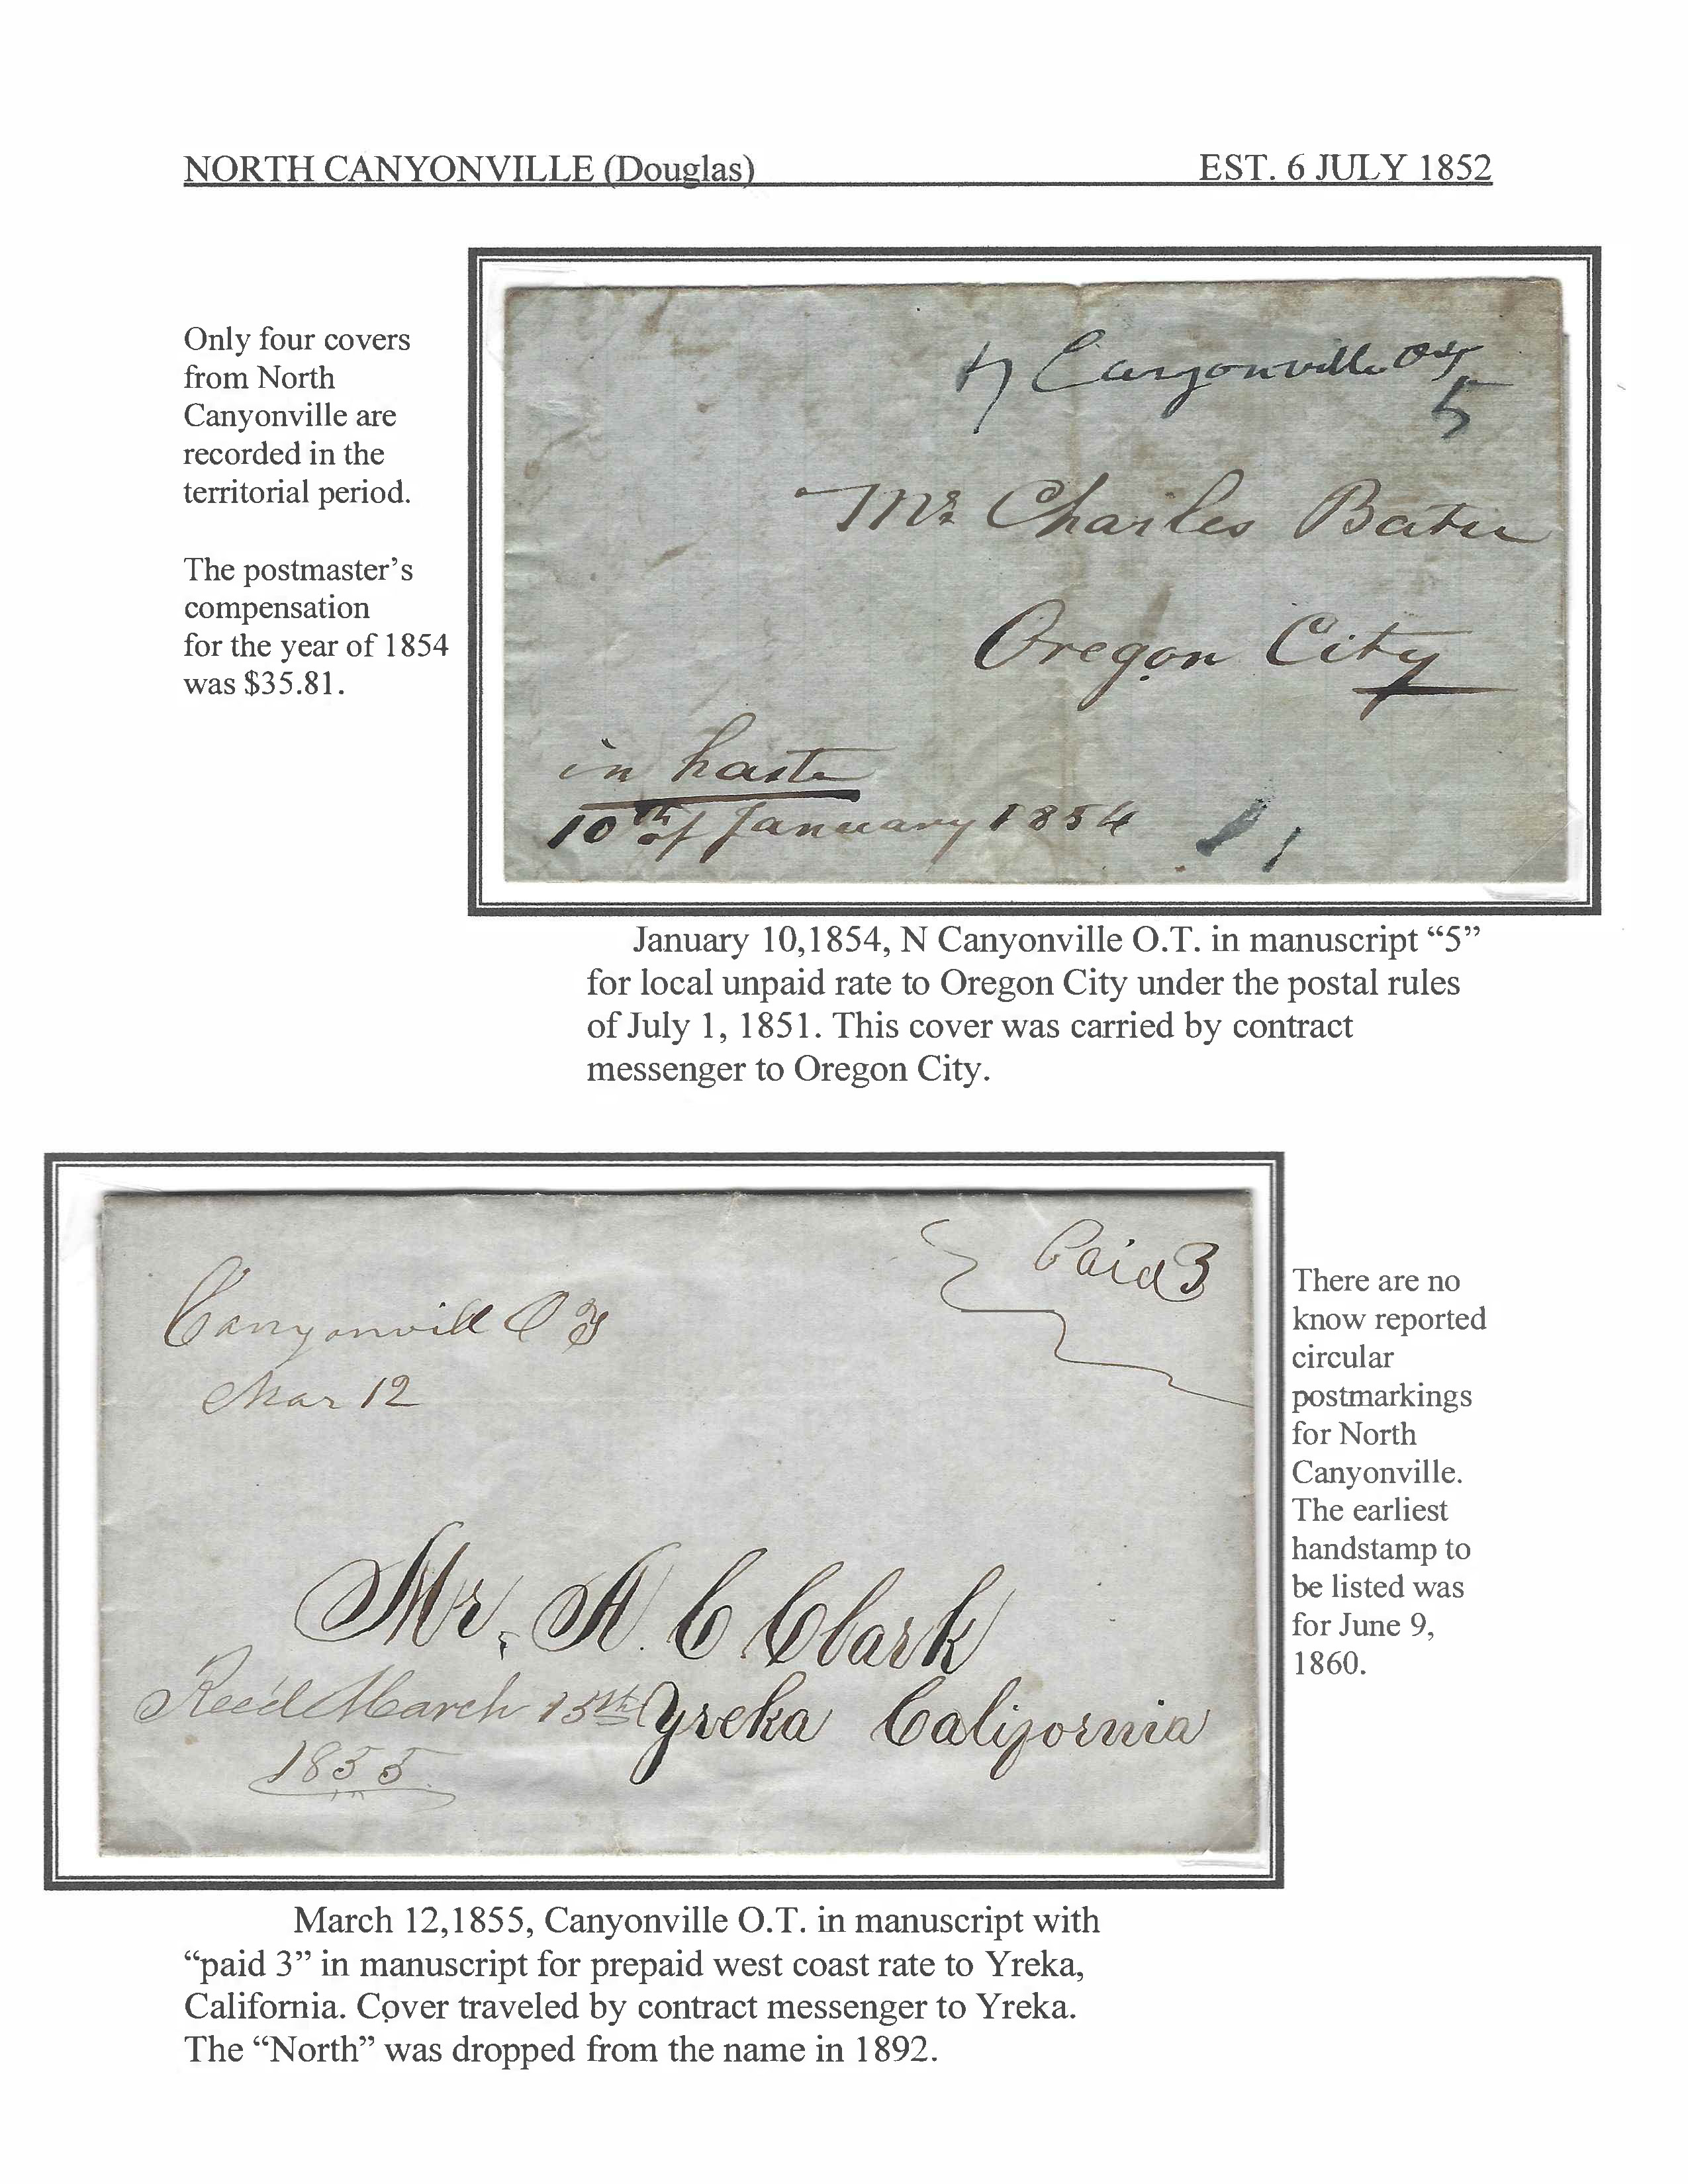 NORTH CANYONVILLE (Douglas) EST. 6 JULY 1852
Only four covers
from North
Canyonville are
recorded in the
territorial period.
The postmaster's
compensation
for the year of 1854
was $35.81.
N Canyonville O T
5
Mr Charles
Oregon City
in haste
10th of January 1854
January 10,1854, N Canyonville O.T. in manuscript “5”
for local unpaid rate to Oregon City under the postal rules
of July 1, 1851. This cover was carried by contract
messenger to Oregon City.
Paid 3
Canyonvill O T
Mar 12
Mr. A. C Clark
Recd March 15th Yreka California
1855
There are no
know reported
circular
postmarkings
for North
Canyonville.
The earliest
handstamp to
be listed was
for June 9,
1860.
March 12,1855, Canyonville O.T. in manuscript with
“paid 3” in manuscript for prepaid west coast rate to Yreka,
California. Cover traveled by contract messenger to Yreka.
The “North” was dropped from the name in 1892.